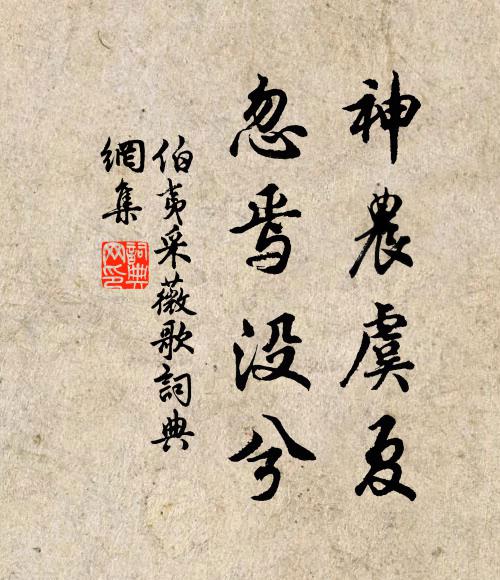 神農虞夏
忽焉没兮
伯夷采薇歌詞典
網集
詞典
网印